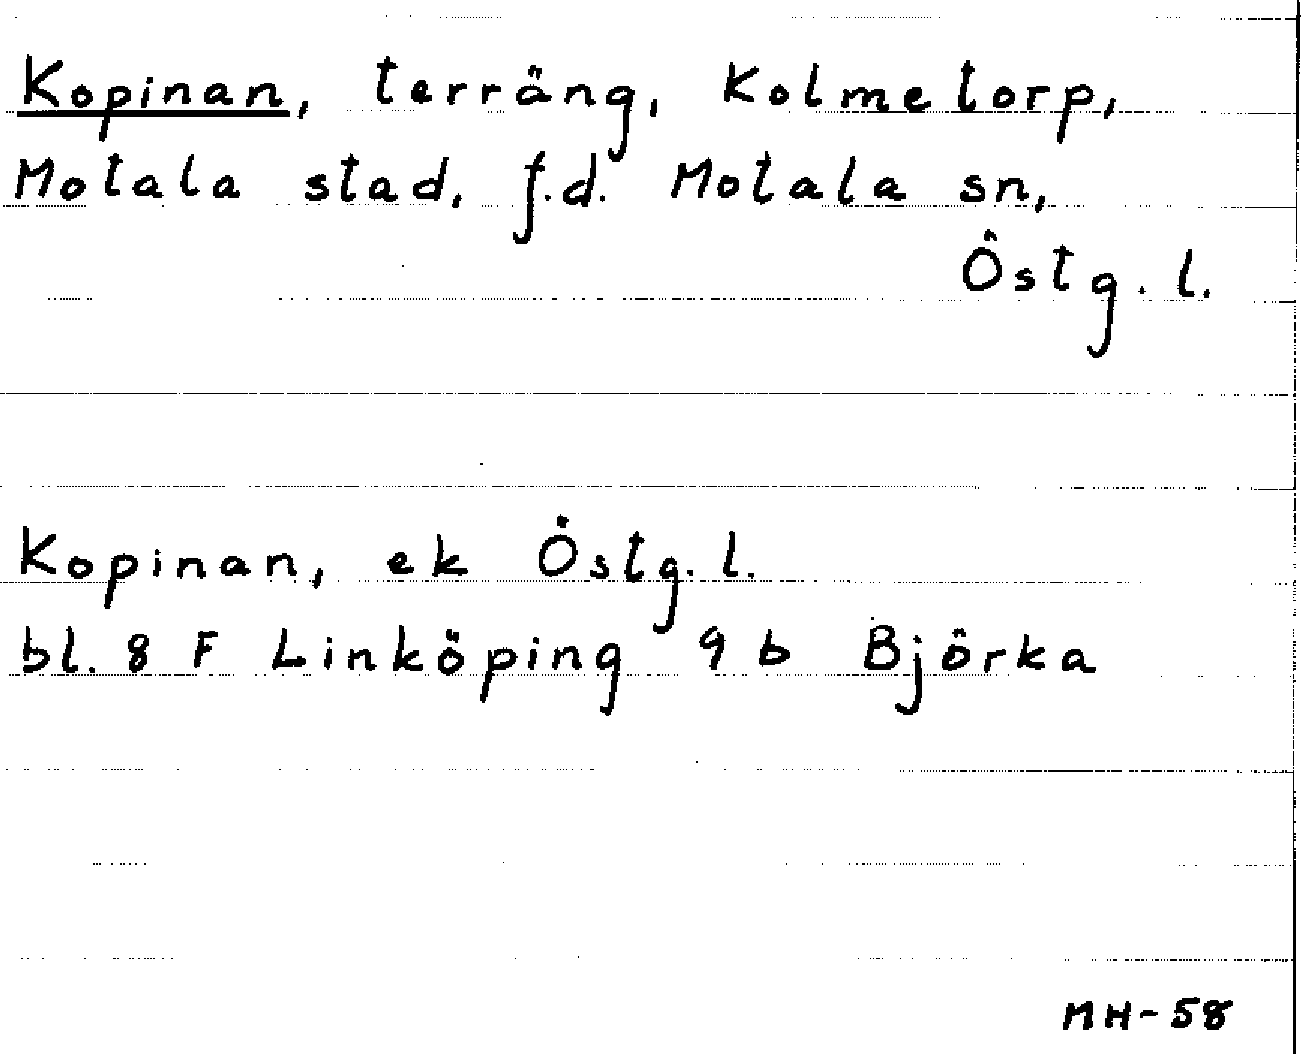 Kopinan, terräng, Kolmetorp,
Motala stad, f.d. Motala sn,
Östg. l.
Kopinan, ek Östg. l.
bl. 8 F Linköping 9 b Björka
MH-58